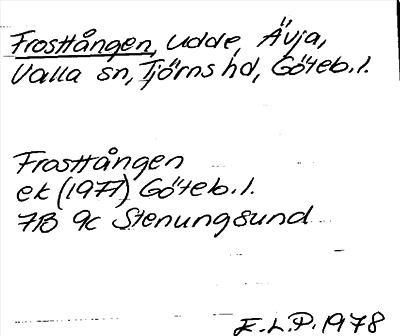 Frosttången, udde, Ävja,
Valla sn, Tjörns hd, Göteb. l.
Frosttången
ek (1977) Göteb. l.
7B 9c Stenungsund
E. L. P. 1978